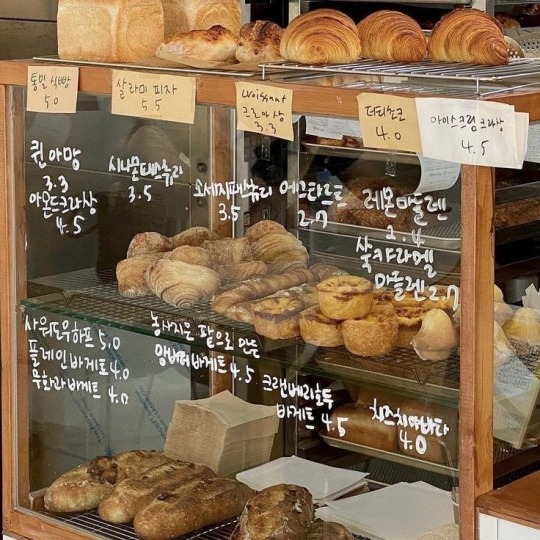 통밀식빵
5.0
살라미 피자
5.5
croissant
크로아상
3.3
더티초코
4.0
아이스크림 크라상
4.5
퀸아망
3.3
아몬드크라상
4.5
시나몬패스츄리
3.5
소세지패스츄리
3.5
에그타르트
2.7
레몬마들렌
2.4
쑥카라멜
마들렌 2.7
사워도우하프 5.0
플레인바게트 4.0
무화과바게트 4.0
농사지은 팥으로 만든
앙버터바게트 4.5
크랜베리호두
바게트 4.5
치즈치아바타
4.0